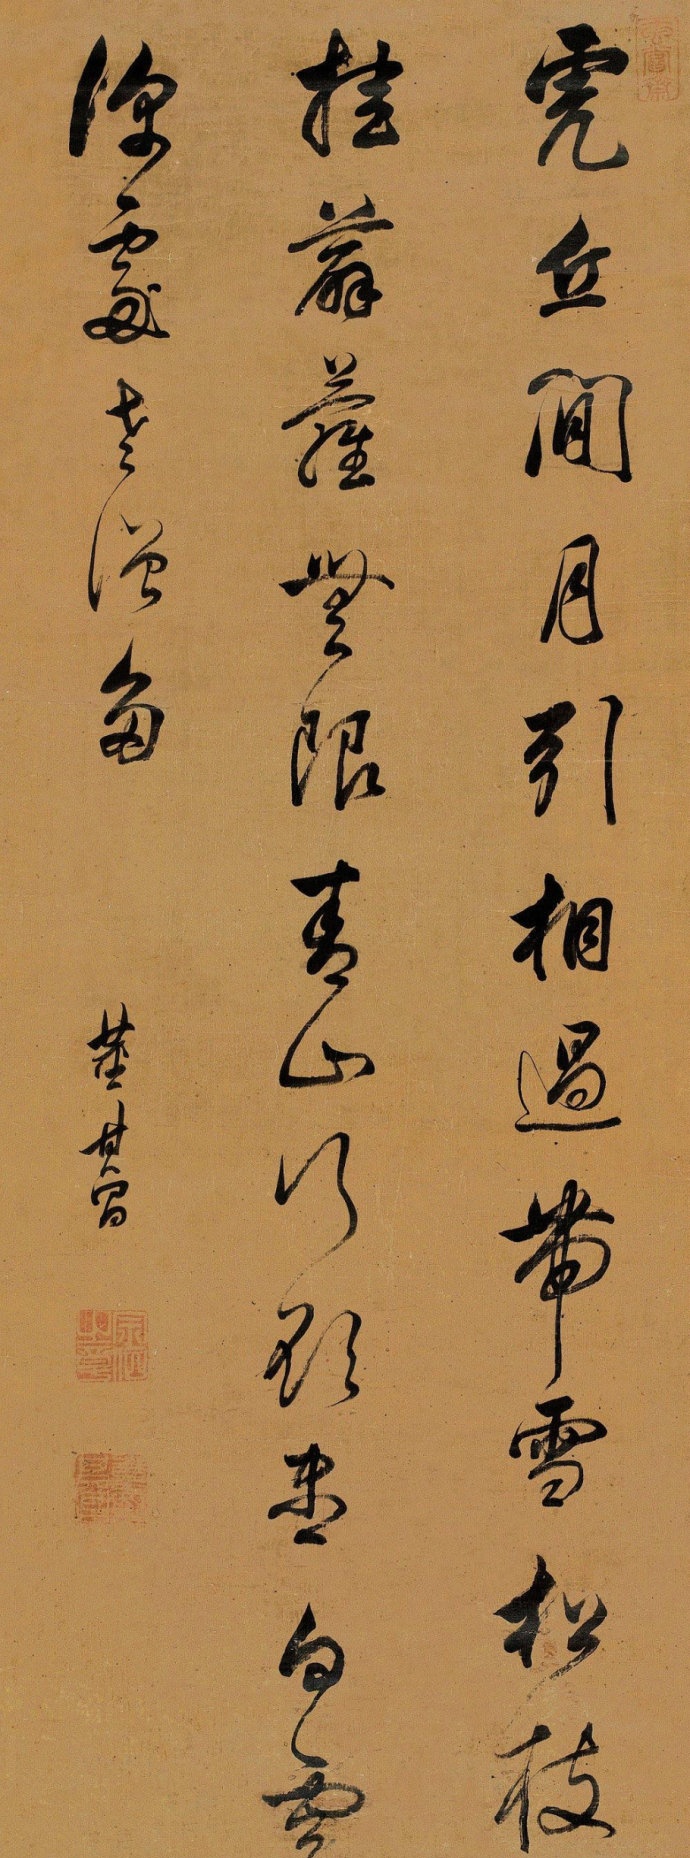 玄賞齋
虎丘閒月引相過帶雪松枝
挂薜蘿無限青山行欲盡白雲
深處老僧多
董其昌